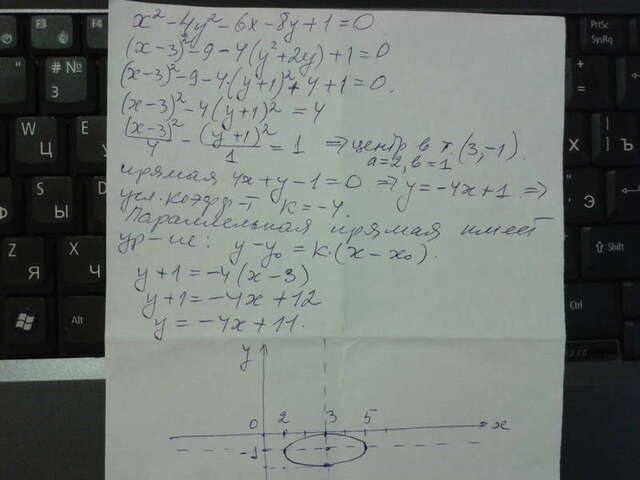 x² - 4y² - 6x - 8y + 1 = 0
(x-3)² - 9 - 4(y²+2y) + 1 = 0
(x-3)² - 9 - 4(y+1)² + 4 + 1 = 0.
(x-3)² - 4(y+1)² = 4
(x-3)²/4 - (y+1)²/1 = 1 ⇒ центр в т. (3,-1).
a=2, b=1
прямая 4x+y-1=0 ⇒ y=-4x+1 ⇒
угл. коэфф-т k=-4.
Параллельная прямая имеет
ур-ие: y-y₀ = k·(x-x₀).
y+1 = -4(x-3)
y+1 = -4x+12
y = -4x+11.
y
0 2 3 5 x
-1
PrtSc
SysRq
+
=
# №
3
Э
Я
Z
Ч
X
Shift
Ctrl
Alt